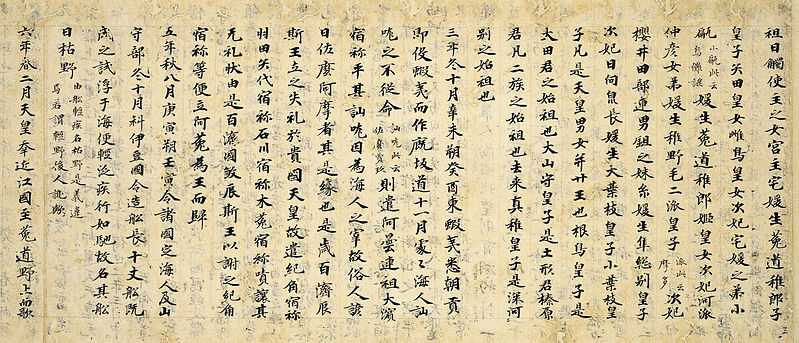 祖日觸使主之女宮主宅媛生菟道稚郎子
皇子矢田皇女雌鳥皇女次妃宅媛之弟小
甂小甂此云烏儺謎媛生菟道稚郎姬皇女次妃河派
仲彦女弟媛生稚野毛二派皇子派此云摩多次妃
櫻井田部連男鉏之妹糸媛生隼総別皇子
次妃日向泉長媛生大葉枝皇子小葉枝皇
子凡是天皇男女并廿王也根鳥皇子是
大田君之始祖也大山守皇子是土形君榛原
君凡二族之始祖也去来真稚皇子是深河
別之始祖也
三年冬十月辛未朔癸酉東蝦夷悉朝貢
即役蝦夷而作厩坂道十一月處々海人訕
哤之不従命訕哤此云佐麼賣玖則遣阿曇連祖大濱
宿祢平其訕哤因為海人之宰故俗人諺
曰佐麼阿摩者其是縁也是歳百濟辰
斯王立之失礼於貴國天皇故遣紀角宿祢
羽田矢代宿祢石川宿祢木菟宿祢嘖讓其
无礼状由是百濟國敓辰斯王以謝之紀角
宿祢等便立阿菟為王而歸
五年秋八月庚寅朔壬寅令諸國定海人及山
守部冬十月科伊豆國令造舩長十丈舩既
成之試浮于海便軽泛疾行如馳故名其舩
曰枯野由舩軽疾名枯野是義違焉若謂軽野後人訛歟
六年春二月天皇幸近江國至菟道野上而歌